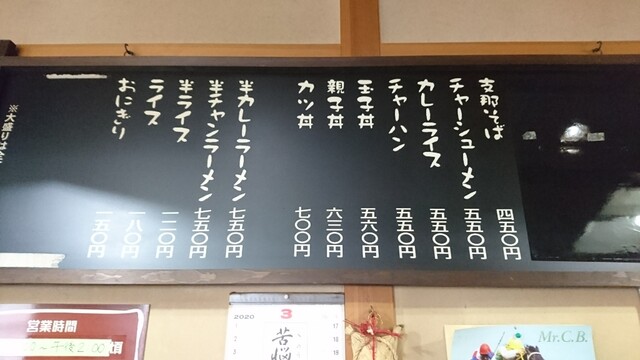 支那そば 四五〇円
チャーシューメン 五五〇円
カレーライス 五五〇円
チャーハン 五五〇円
玉子丼 五六〇円
親子丼 六三〇円
カツ丼 七〇〇円
半カレーラーメン 七五〇円
半チャンラーメン 七五〇円
半ライス 一二〇円
ライス 一八〇円
おにぎり 一五〇円
※大盛りは全
営業時間
～午後2:00頃
2020 3
苦悩
Mr.C.B.